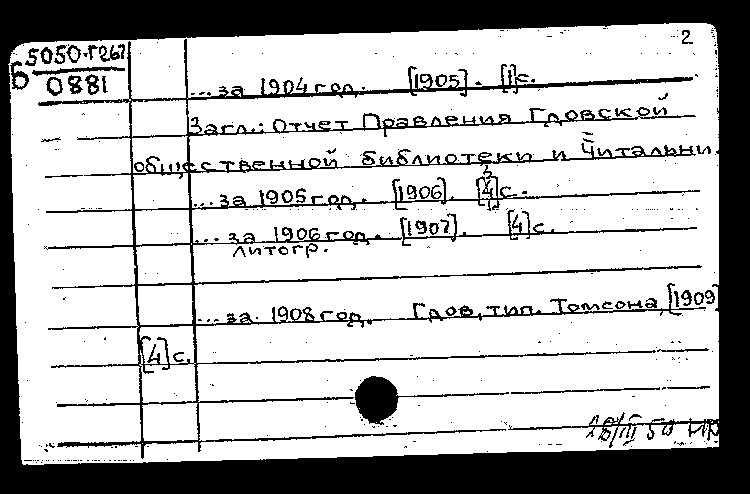 2
5050-Г267
Б 0881
...за 1904 год. [1905]. [1] с.
Загл.: Отчет Правления Гдовской
общественной библиотеки и Читальни.
...за 1905 год. [1906]. [4] с.
...за 1906 год. [1907]. [4] с.
Литогр.
...за 1908 год. Гдов, тип. Томсона, [1909]
[4] с.